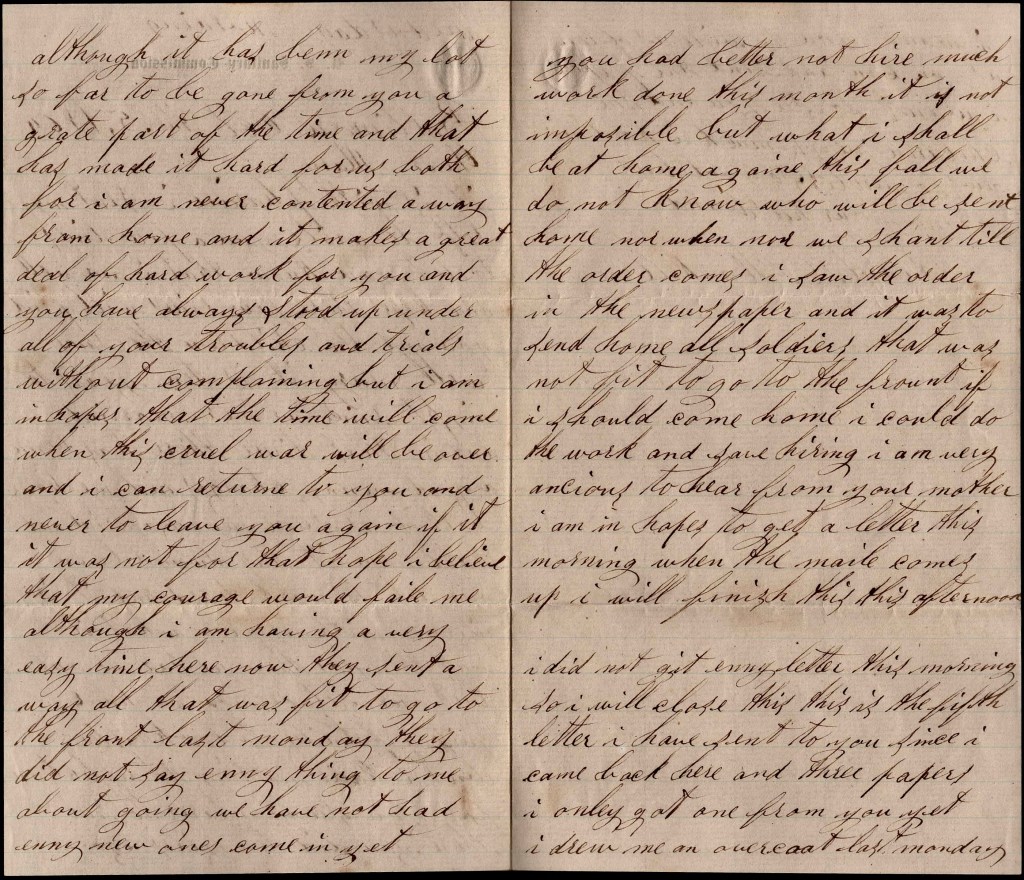 although it has benn my lot
so far to be gone from you a
grate part of the time and that
has made it hard for us both
for i am never contented a way
from home and it makes a great
deal of hard work for you and
you have always stood up under
all of your troubles and trials
without complaining but i am
in hopes that the time will come
when this cruel war will be over
and i can returne to you and
never to leave you again if it
it was not for that hope i believe
that my courage would faile me
although i am having a very
easy time here now they sent a
way all that was fit to go to
the front last monday they
did not say enny thing to me
about going we have not had
enny new ones come in yet
you had better not hire much
work done this month it is not
imposible but what i shall
be at home againe this fall we
do not know who will be sent
home nor when nor we shant till
the order comes i saw the order
in the newspaper and it was to
send home all soldiers that was
not fit to go to the frount if
i should come home i could do
the work and save hiring i am very
ancious to hear from your mother
i am in hopes to get a letter this
morning when the maile comes
up i will finish this this afternoon
i did not git enny letter this morning
so i will close this this is the fifth
letter i have sent to you since i
came back here and three papers
i onley got one from you yet
i drew me an overcoat last monday